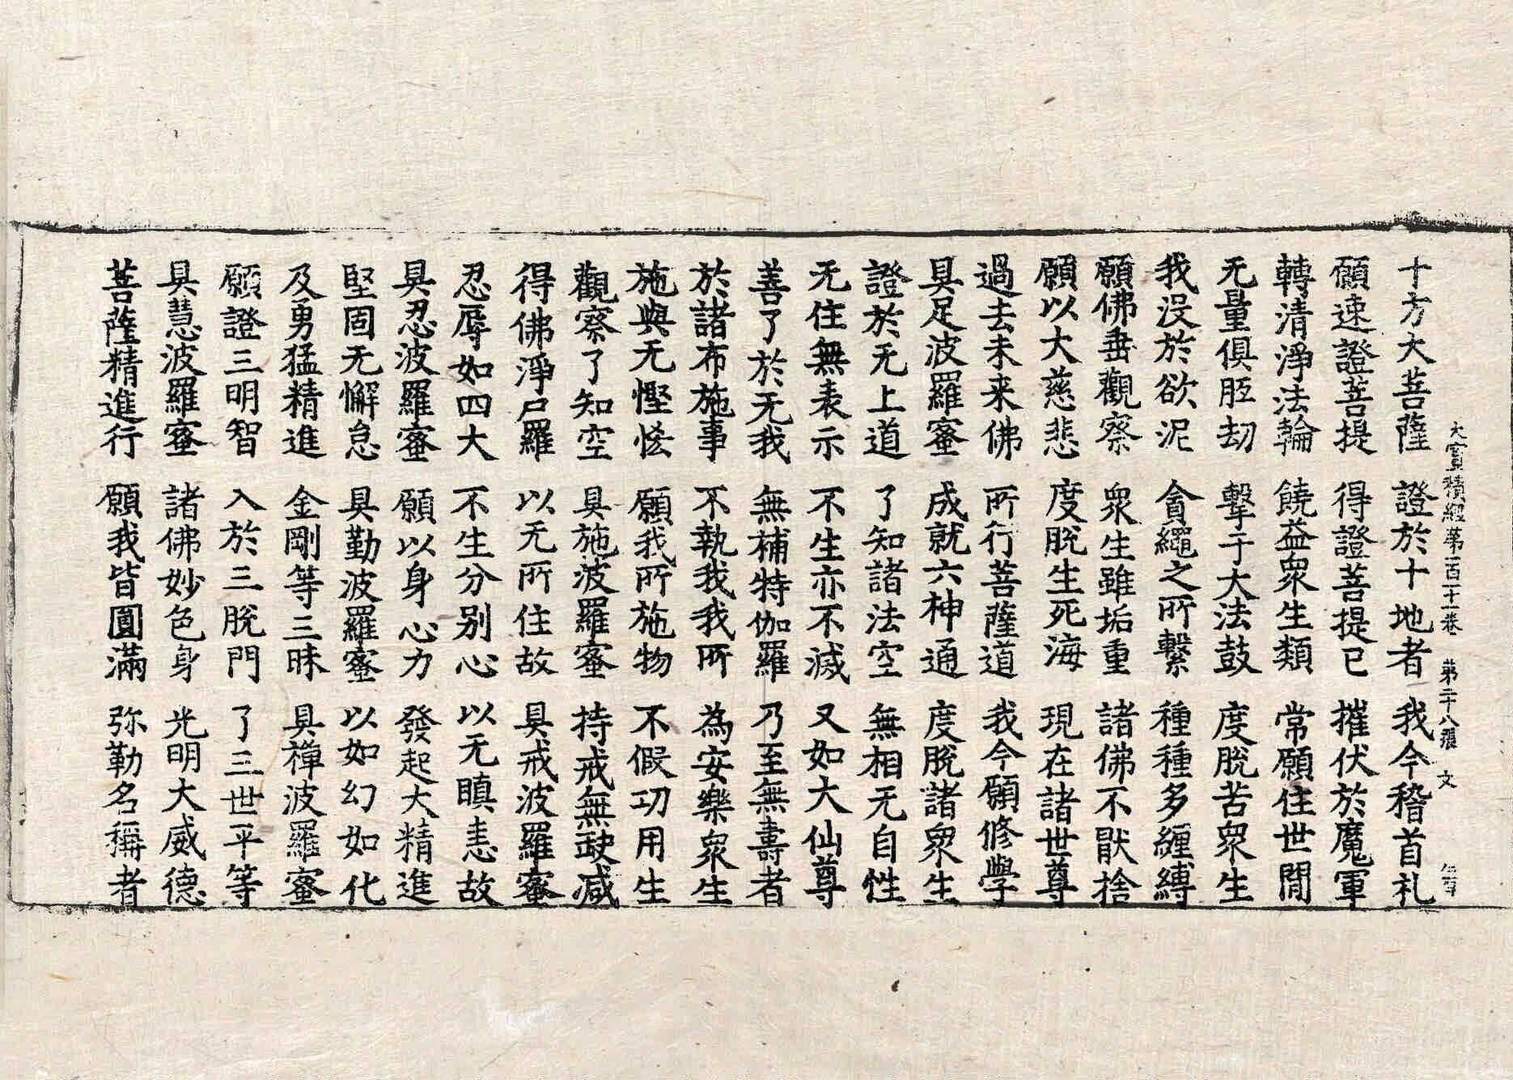 大寶積經第一百十一卷 第二十八張 文
十方大菩薩 證於十地者 我今稽首礼
願速證菩提 得證菩提已 摧伏於魔軍
轉清淨法輪 饒益衆生類 常願住世間
无量俱胝劫 擊于大法鼓 度脫苦衆生
我没於欲泥 貪繩之所繫 種種多纏縛
願佛垂觀察 衆生雖垢重 諸佛不猒捨
願以大慈悲 度脫生死海 現在諸世尊
過去未来佛 所行菩薩道 我今願修學
具足波羅蜜 成就六神通 度脫諸衆生
證於无上道 了知諸法空 無相无自性
无住無表示 不生亦不滅 又如大仙尊
善了於无我 無補特伽羅 乃至無壽者
於諸布施事 不執我我所 為安樂衆生
施與无慳恡 願我所施物 不假功用生
觀察了知空 具施波羅蜜 持戒無缺減
得佛淨尸羅 以无所住故 具戒波羅蜜
忍辱如四大 不生分别心 以无瞋恚故
具忍波羅蜜 願以身心力 發起大精進
堅固无懈怠 具勤波羅蜜 以如幻如化
及勇猛精進 金剛等三昧 具禪波羅蜜
願證三明智 入於三脫門 了三世平等
具慧波羅蜜 諸佛妙色身 光明大威德
菩薩精進行 願我皆圓滿 弥勒名稱者